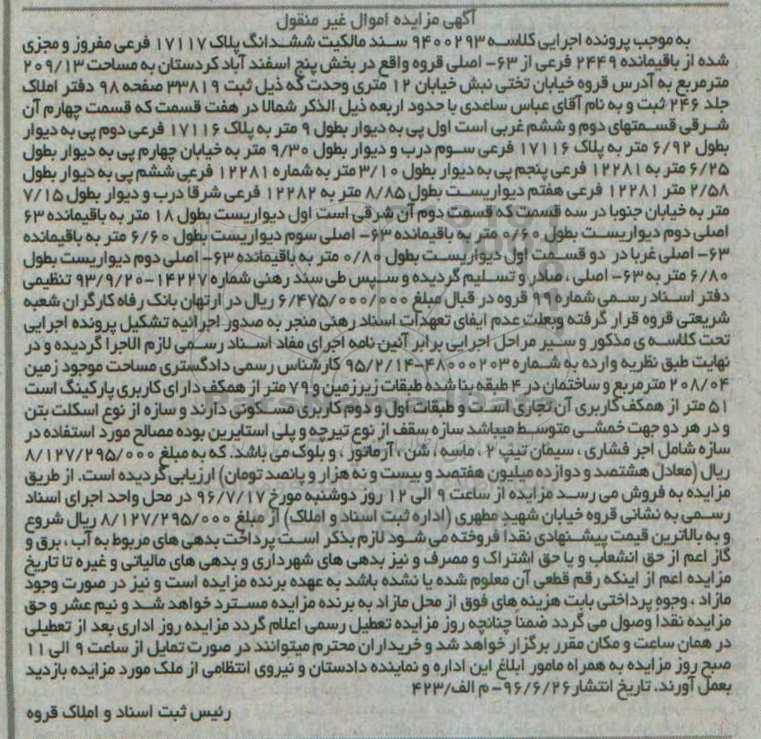 آگهی مزایده اموال غیر منقول
به موجب پرونده اجرایی کلاسه ۹۴۰۰۲۹۳ سند مالکیت ششدانگ پلاک ۱۷۱۱۷ فرعی مفروز و مجزی
شده از باقیمانده ۲۴۴۹ فرعی از ۶۳- اصلی قروه واقع در بخش پنج اسفند آباد کردستان به مساحت ۲۰۹/۱۳
مترمربع به آدرس قروه خیابان تختی نبش خیابان ۱۲ متری وحدت که ذیل ثبت ۳۳۸۱۹ صفحه ۹۸ دفتر املاک
جلد ۲۴۶ ثبت و به نام آقای عباس ساعدی با حدود اربعه ذیل الذکر شمالا در هفت قسمت که قسمت چهارم آن
شرقی قسمتهای دوم و ششم غربی است اول پی به دیوار بطول ۹ متر به پلاک ۱۷۱۱۶ فرعی دوم پی به دیوار
بطول ۶/۹۲ متر به پلاک ۱۷۱۱۶ فرعی سوم درب و دیوار بطول ۹/۳۰ متر به خیابان چهارم پی به دیوار بطول
۶/۲۵ متر به ۱۲۲۸۱ فرعی پنجم پی به دیوار بطول ۳/۱۰ متر به شماره ۱۲۲۸۱ فرعی ششم پی به دیوار بطول
۲/۵۸ متر ۱۲۲۸۱ فرعی هفتم دیواریست بطول ۸/۸۵ متر به ۱۲۲۸۲ فرعی شرقا درب و دیوار بطول ۷/۱۵
متر به خیابان جنوبا در سه قسمت که قسمت دوم آن شرقی است اول دیواریست بطول ۱۸ متر به باقیمانده ۶۳
اصلی دوم دیواریست بطول ۰/۶۰ متر به باقیمانده ۶۳- اصلی سوم دیواریست بطول ۶/۶۰ متر به باقیمانده
۶۳- اصلی غربا در دو قسمت اول دیواریست بطول ۰/۸۰ متر به باقیمانده ۶۳- اصلی دوم دیواریست بطول
۶/۸۰ متر به ۶۳- اصلی ، صادر و تسلیم گردیده و سپس طی سند رهنی شماره ۱۴۲۲۷-۹۳/۹/۲۰ تنظیمی
دفتر اسناد رسمی شماره ۹۹ قروه در قبال مبلغ ۶/۴۷۵/۰۰۰/۰۰۰ ریال در ارتهان بانک رفاه کارگران شعبه
شریعتی قروه قرار گرفته وبعلت عدم ایفای تعهدات اسناد رهنی منجر به صدور اجرائیه تشکیل پرونده اجرایی
تحت کلاسه ی مذکور و سیر مراحل اجرایی برابر آئین نامه اجرای مفاد اسناد رسمی لازم الاجرا گردیده و در
نهایت طبق نظریه وارده به شماره ۴۸۰۰۰۲۰۳-۹۵/۲/۱۴ کارشناس رسمی دادگستری مساحت موجود زمین
۲۰۸/۰۴ مترمربع و ساختمان در ۴ طبقه بنا شده طبقات زیرزمین و ۷۹ متر از همکف دارای کاربری پارکینگ است
۵۱ متر از همکف کاربری آن تجاری است و طبقات اول و دوم کاربری مسکونی دارند و سازه از نوع اسکلت بتن
و در هر دو جهت خمشی متوسط میباشد سازه سقف از نوع تیرچه و پلی استایرین بوده مصالح مورد استفاده در
سازه شامل اجر فشاری ، سیمان تیپ ۲ ، ماسه ، شن ، آرماتور ، و بلوک می باشد. که به مبلغ ۸/۱۲۷/۲۹۵/۰۰۰
ریال (معادل هشتصد و دوازده میلیون هفتصد و بیست و نه هزار و پانصد تومان) ارزیابی گردیده است. از طریق
مزایده به فروش می رسد مزایده از ساعت ۹ الی ۱۲ روز دوشنبه مورخ ۹۶/۷/۱۷ در محل واحد اجرای اسناد
رسمی به نشانی قروه خیابان شهید مطهری (اداره ثبت اسناد و املاک) از مبلغ ۸/۱۲۷/۲۹۵/۰۰۰ ریال شروع
و به بالاترین قیمت پیشنهادی نقدا فروخته می شود لازم بذکر است پرداخت بدهی های مربوط به آب ، برق و
گاز اعم از حق انشعاب و یا حق اشتراک و مصرف و نیز بدهی های شهرداری و بدهی های مالیاتی و غیره تا تاریخ
مزایده اعم از اینکه رقم قطعی آن معلوم شده یا نشده باشد به عهده برنده مزایده است و نیز در صورت وجود
مازاد ، وجوه پرداختی بابت هزینه های فوق از محل مازاد به برنده مزایده مسترد خواهد شد و نیم عشر و حق
مزایده نقدا وصول می گردد ضمنا چنانچه روز مزایده تعطیل رسمی اعلام گردد مزایده روز اداری بعد از تعطیلی
در همان ساعت و مکان مقرر برگزار خواهد شد و خریداران محترم میتوانند در صورت تمایل از ساعت ۹ الی ۱۱
صبح روز مزایده به همراه مامور ابلاغ این اداره و نماینده دادستان و نیروی انتظامی از ملک مورد مزایده بازدید
بعمل آورند. تاریخ انتشار ۹۶/۶/۲۶- م الف/۴۲۳
رئیس ثبت اسناد و املاک قروه